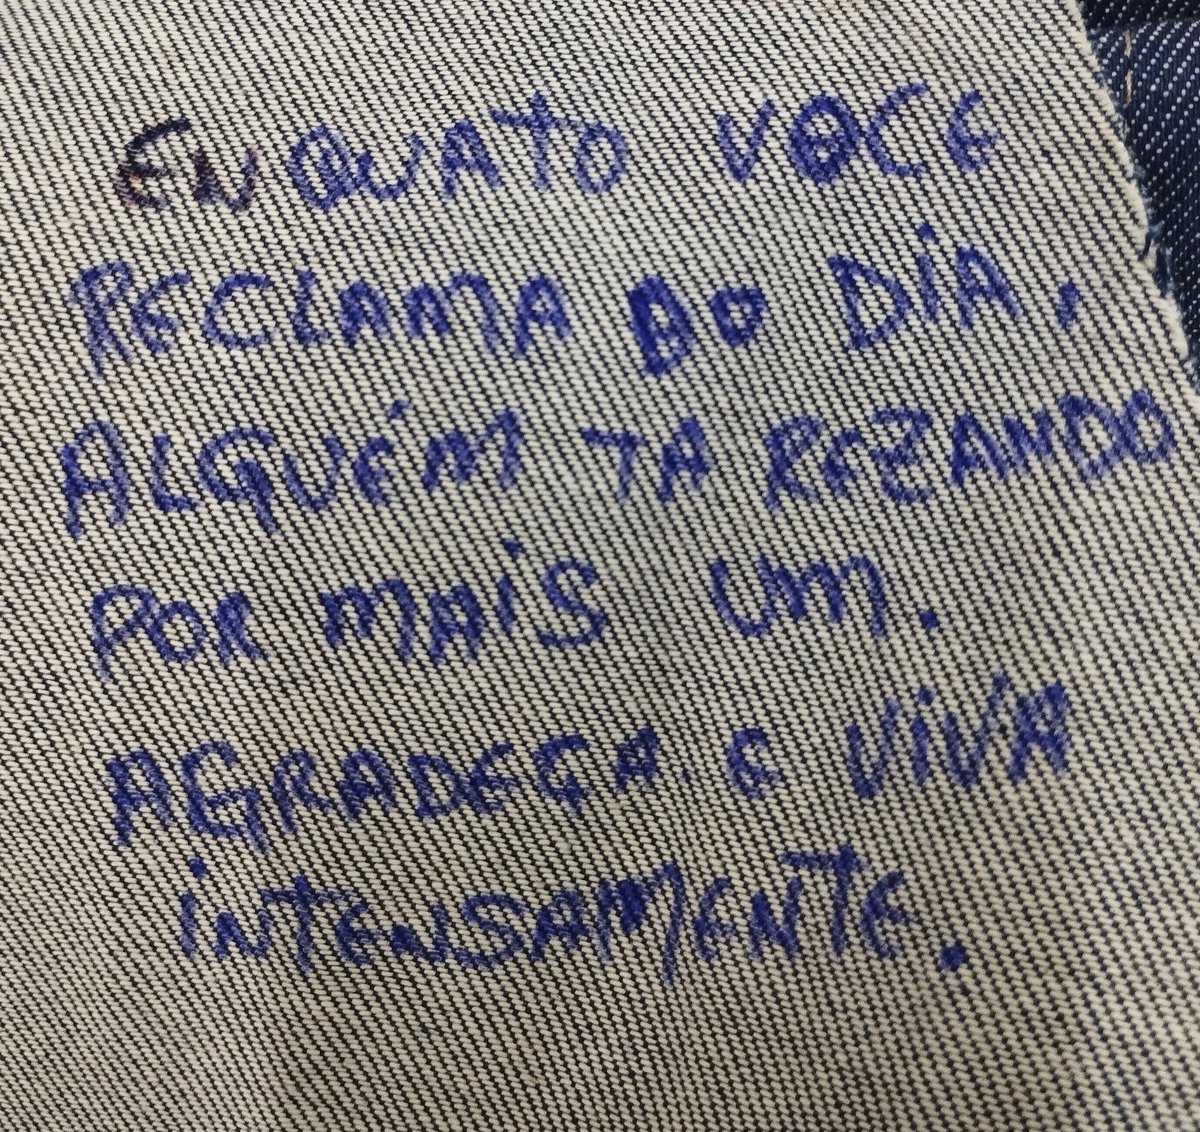 ENQUATO VOCE
RECLAMA DO DiA,
ALGUÉM TA REZANDO
POR MAiS UM.
AGRADEÇA E ViVA
iNTENSAMENTE.